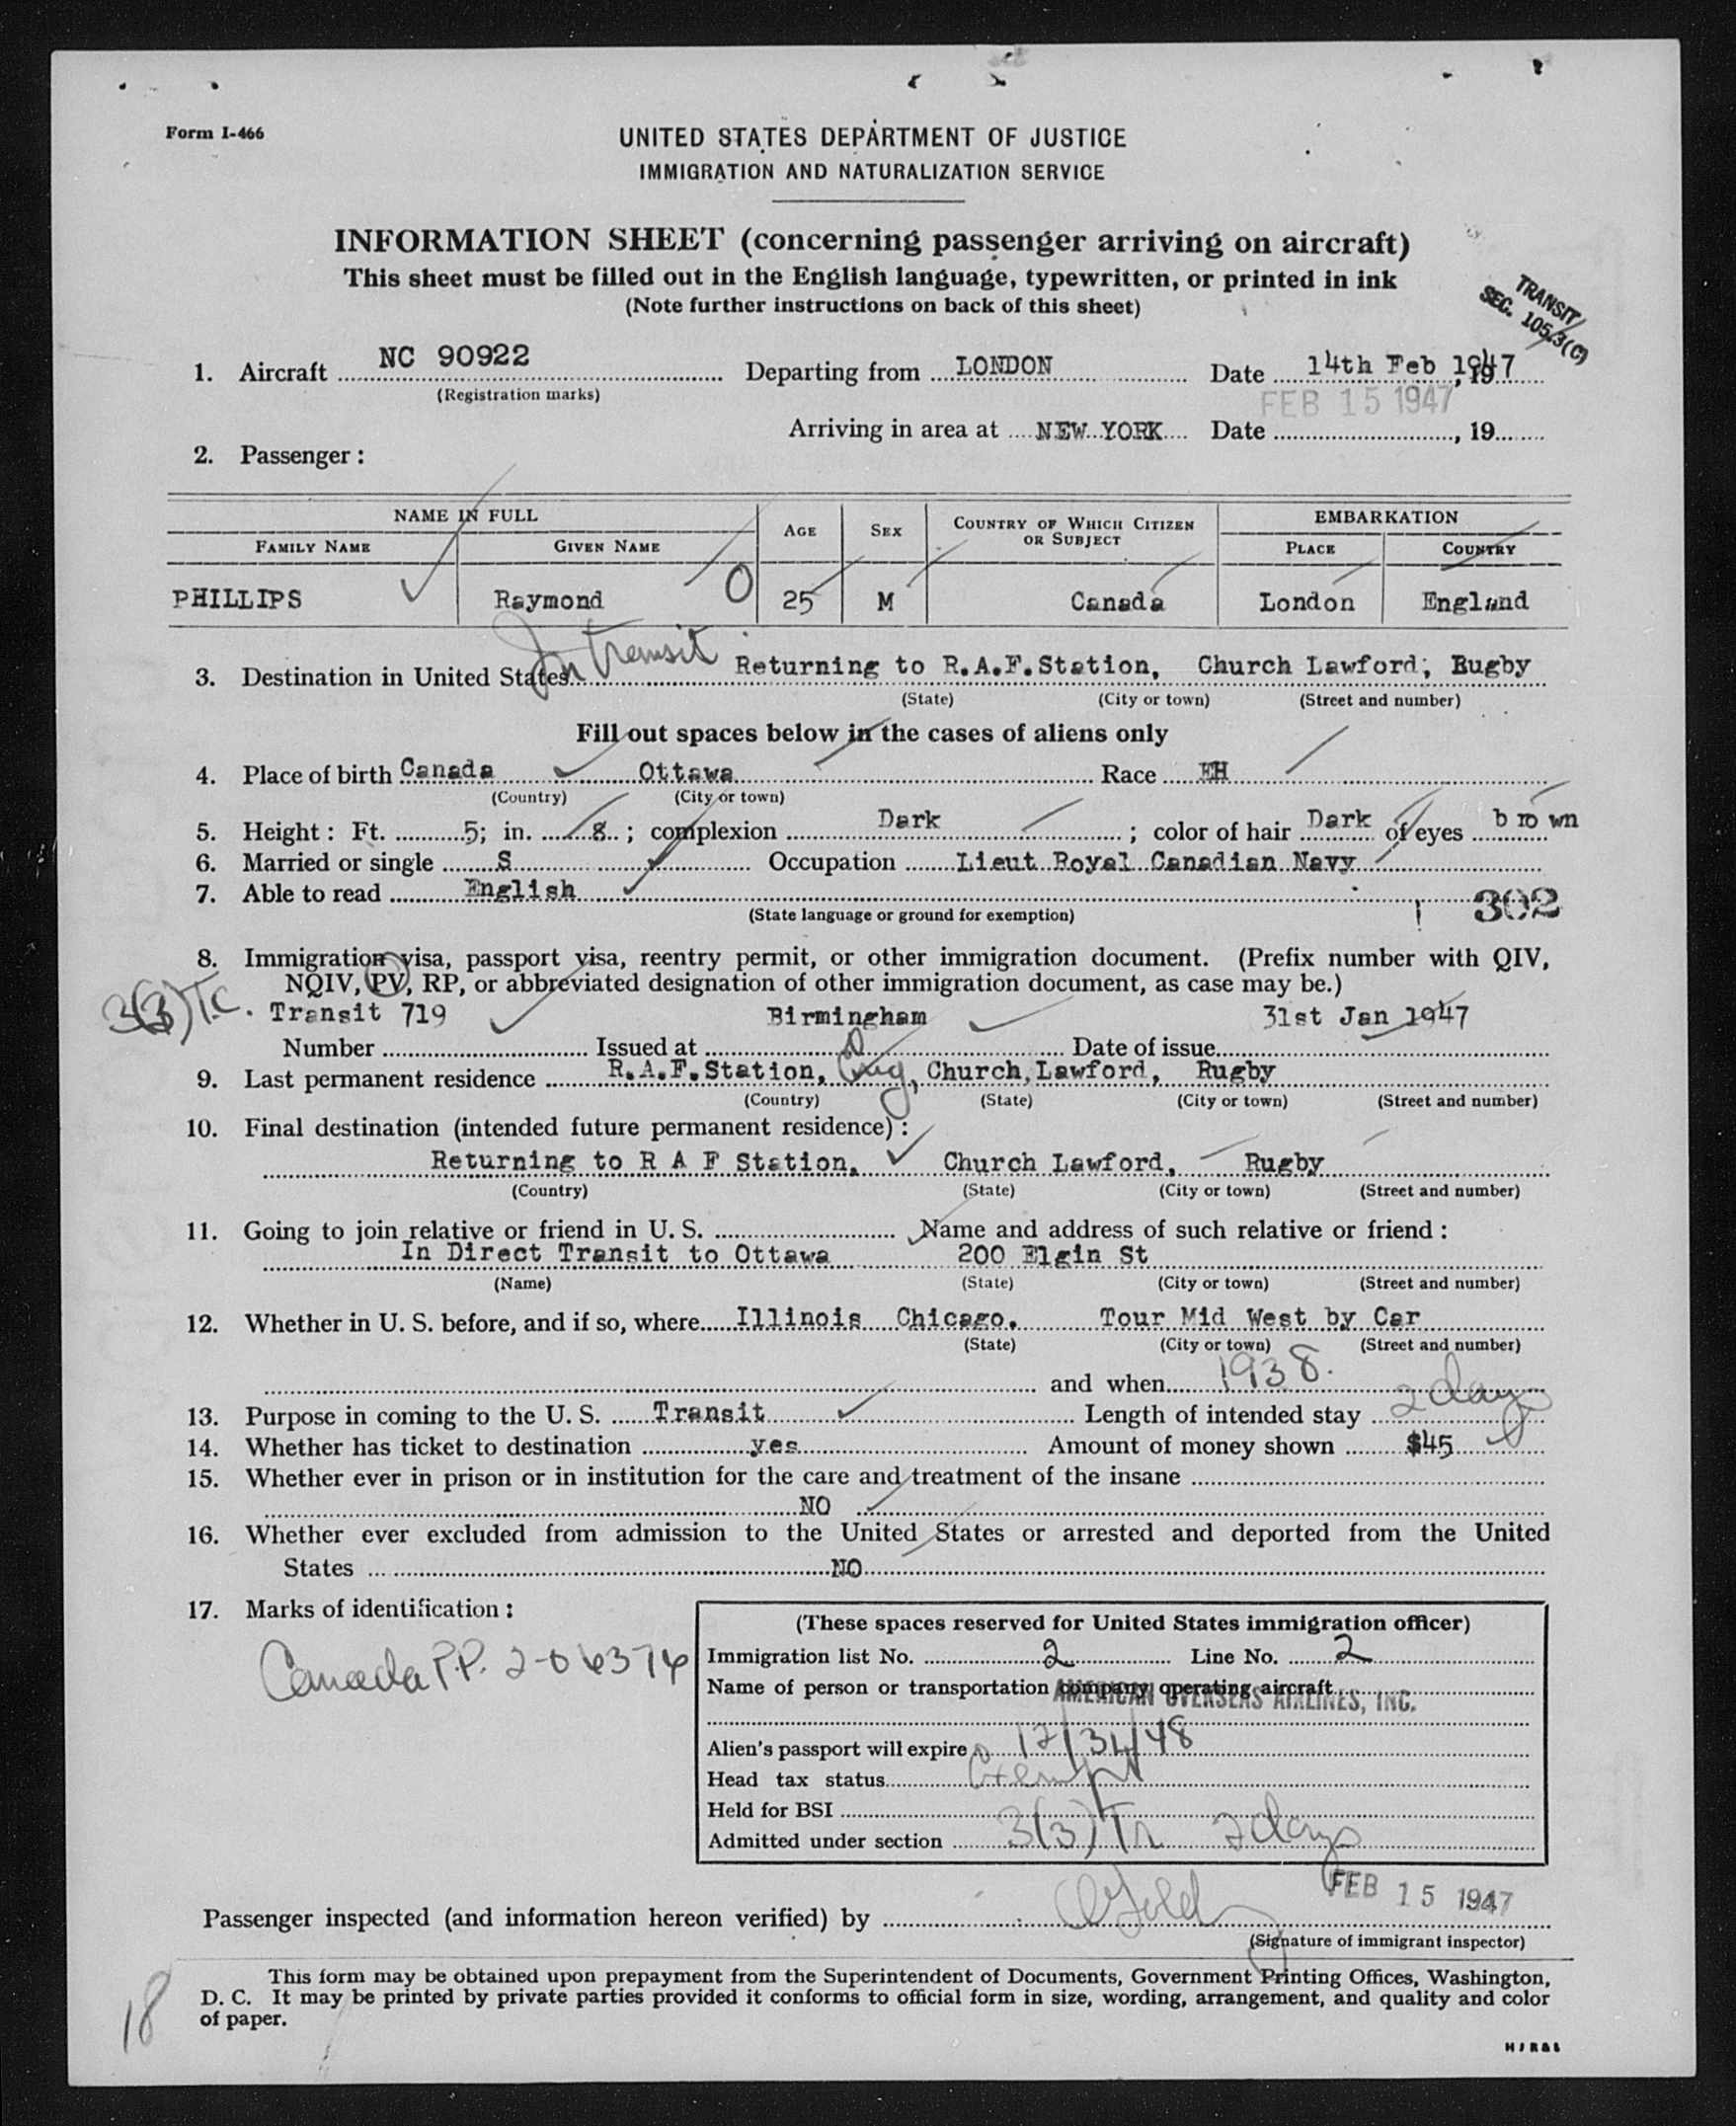 Form I-466
UNITED STATES DEPARTMENT OF JUSTICE
IMMIGRATION AND NATURALIZATION SERVICE
INFORMATION SHEET (concerning passenger arriving on aircraft)
This sheet must be filled out in the English language, typewritten, or printed in ink
(Note further instructions on back of this sheet)
TRANSIT
SEC. 105.3(C)
1. Aircraft NC 90922 Departing from LONDON Date 14th Feb 1947, 19
(Registration marks)
FEB 15 1947
Arriving in area at NEW YORK Date , 19
2. Passenger:
NAME IN FULL AGE SEX COUNTRY OF WHICH CITIZEN OR SUBJECT EMBARKATION
FAMILY NAME GIVEN NAME PLACE COUNTRY
PHILLIPS Raymond O 25 M Canada London England
In transit
3. Destination in United States Returning to R.A.F.Station, Church Lawford, Rugby
(State) (City or town) (Street and number)
Fill out spaces below in the cases of aliens only
4. Place of birth Canada Ottawa Race EH
(Country) (City or town)
5. Height: Ft. 5; in. 8; complexion Dark; color of hair Dark of eyes brown
6. Married or single S Occupation Lieut Royal Canadian Navy
7. Able to read English
(State language or ground for exemption)
302
8. Immigration visa, passport visa, reentry permit, or other immigration document. (Prefix number with QIV,
NQIV, PV, RP, or abbreviated designation of other immigration document, as case may be.)
3(3) T.C. Transit 719 Birmingham 31st Jan 1947
Number Issued at Date of issue
9. Last permanent residence R.A.F.Station, Eng, Church, Lawford, Rugby
(Country) (State) (City or town) (Street and number)
10. Final destination (intended future permanent residence):
Returning to R A F Station, Church Lawford, Rugby
(Country) (State) (City or town) (Street and number)
11. Going to join relative or friend in U. S. Name and address of such relative or friend:
In Direct Transit to Ottawa 200 Elgin St
(Name) (State) (City or town) (Street and number)
12. Whether in U. S. before, and if so, where Illinois Chicago. Tour Mid West by Car
(State) (City or town) (Street and number)
and when 1938.
13. Purpose in coming to the U. S. Transit Length of intended stay 2 days
14. Whether has ticket to destination yes Amount of money shown $45
15. Whether ever in prison or in institution for the care and treatment of the insane
NO
16. Whether ever excluded from admission to the United States or arrested and deported from the United
States NO
17. Marks of identification:
Canada P.P. 2-06376
(These spaces reserved for United States immigration officer)
Immigration list No. 2 Line No. 2
Name of person or transportation company operating aircraft
AMERICAN OVERSEAS AIRLINES, INC.
Alien's passport will expire 12/31/48
Head tax status Exempt
Held for BSI
Admitted under section 3(3) Tr 2 days
FEB 15 1947
Passenger inspected (and information hereon verified) by
(Signature of immigrant inspector)
This form may be obtained upon prepayment from the Superintendent of Documents, Government Printing Offices, Washington,
D. C. It may be printed by private parties provided it conforms to official form in size, wording, arrangement, and quality and color
of paper.
18